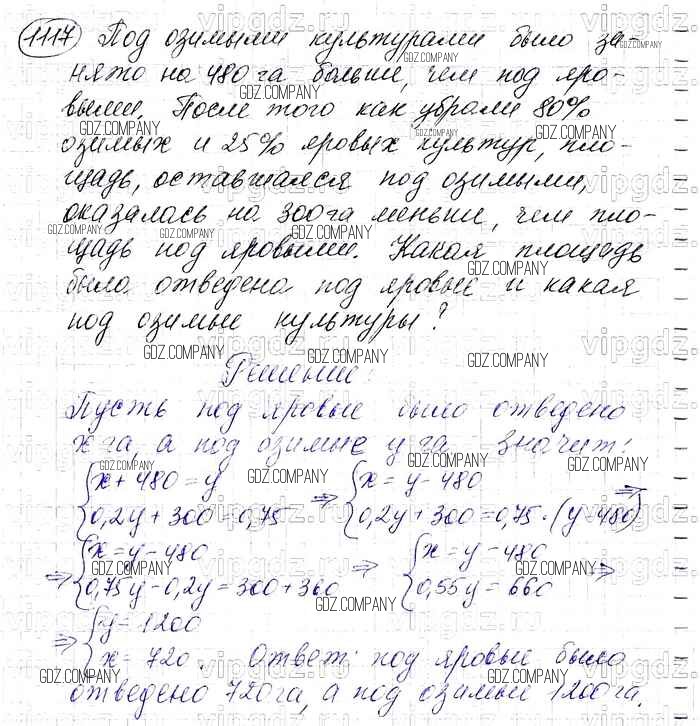 1117 Под озимыми культурами было за-
нято на 480 га больше, чем под яро-
выми. После того как убрали 80%
озимых и 25% яровых культур, пло-
щадь, оставшаяся под озимыми,
оказалась на 300 га меньше, чем пло-
щадь под яровыми. Какая площадь
была отведена под яровые и какая
под озимые культуры?
Решение:
Пусть под яровые было отведено
x га, а под озимые y га. Значит:
{x + 480 = y => {x = y - 480 =>
{0,2y + 300 = 0,75 {0,2y + 300 = 0,75 · (y - 480)
=> {x = y - 480 => {x = y - 480 =>
{0,75y - 0,2y = 300 + 360 {0,55y = 660
=> {y = 1200
{x = 720. Ответ: под яровые было
отведено 720 га, а под озимые 1200 га.
GDZ.COMPANY
vipgdz.ru